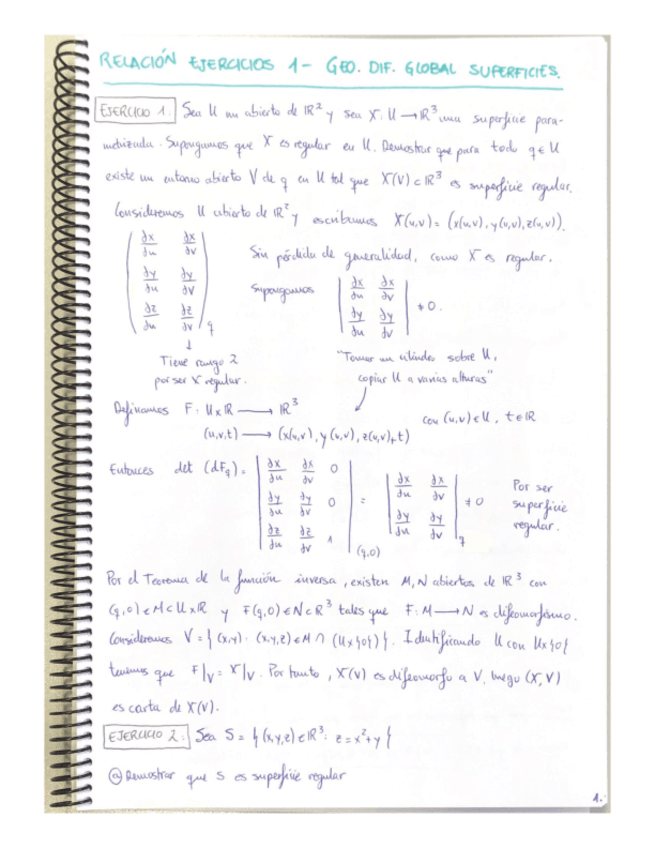 RELACIÓN EJERCICIOS 1 - GEO. DIF. GLOBAL SUPERFICIES.
EJERCICIO 1. Sea U un abierto de ℝ² y sea X: U → ℝ³ una superficie para-
metrizada. Supongamos que X es regular en U. Demostrar que para todo q ∈ U
existe un entorno abierto V de q en U tal que X(V) ⊂ ℝ³ es superficie regular.
Consideremos U abierto de ℝ² y escribamos X(u,v) = (x(u,v), y(u,v), z(u,v)).
∂x/∂u ∂x/∂v
∂y/∂u ∂y/∂v
∂z/∂u ∂z/∂v q
Sin pérdida de generalidad, como X es regular.
Supongamos | ∂x/∂u ∂x/∂v
∂y/∂u ∂y/∂v | ≠ 0.
↓
Tiene rango 2
por ser X regular.
"Tomar un cilindro sobre U,
copiar U a varias alturas"
Definamos F: U×ℝ → ℝ³
(u,v,t) → (x(u,v), y(u,v), z(u,v)+t)
con (u,v) ∈ U, t ∈ ℝ
Entonces det (dF_q) = | ∂x/∂u ∂x/∂v 0
∂y/∂u ∂y/∂v 0
∂z/∂u ∂z/∂v 1 | (q,0)
= | ∂x/∂u ∂x/∂v
∂y/∂u ∂y/∂v | q ≠ 0
Por ser
superficie
regular.
Por el Teorema de la función inversa, existen M, N abiertos de ℝ³ con
(q,0) ∈ M ⊂ U×ℝ y F(q,0) ∈ N ⊂ ℝ³ tales que F: M → N es difeomorfismo.
Consideremos V = { (x,y): (x,y,z) ∈ M ∩ (U×{0}) }. Identificando U con U×{0}
tenemos que F|_V = X|_V. Por tanto, X(V) es difeomorfo a V, luego (X, V)
es carta de X(V).
EJERCICIO 2: Sea S = { (x,y,z) ∈ ℝ³: z = x² + y }
ⓐ Demostrar que S es superficie regular
1.